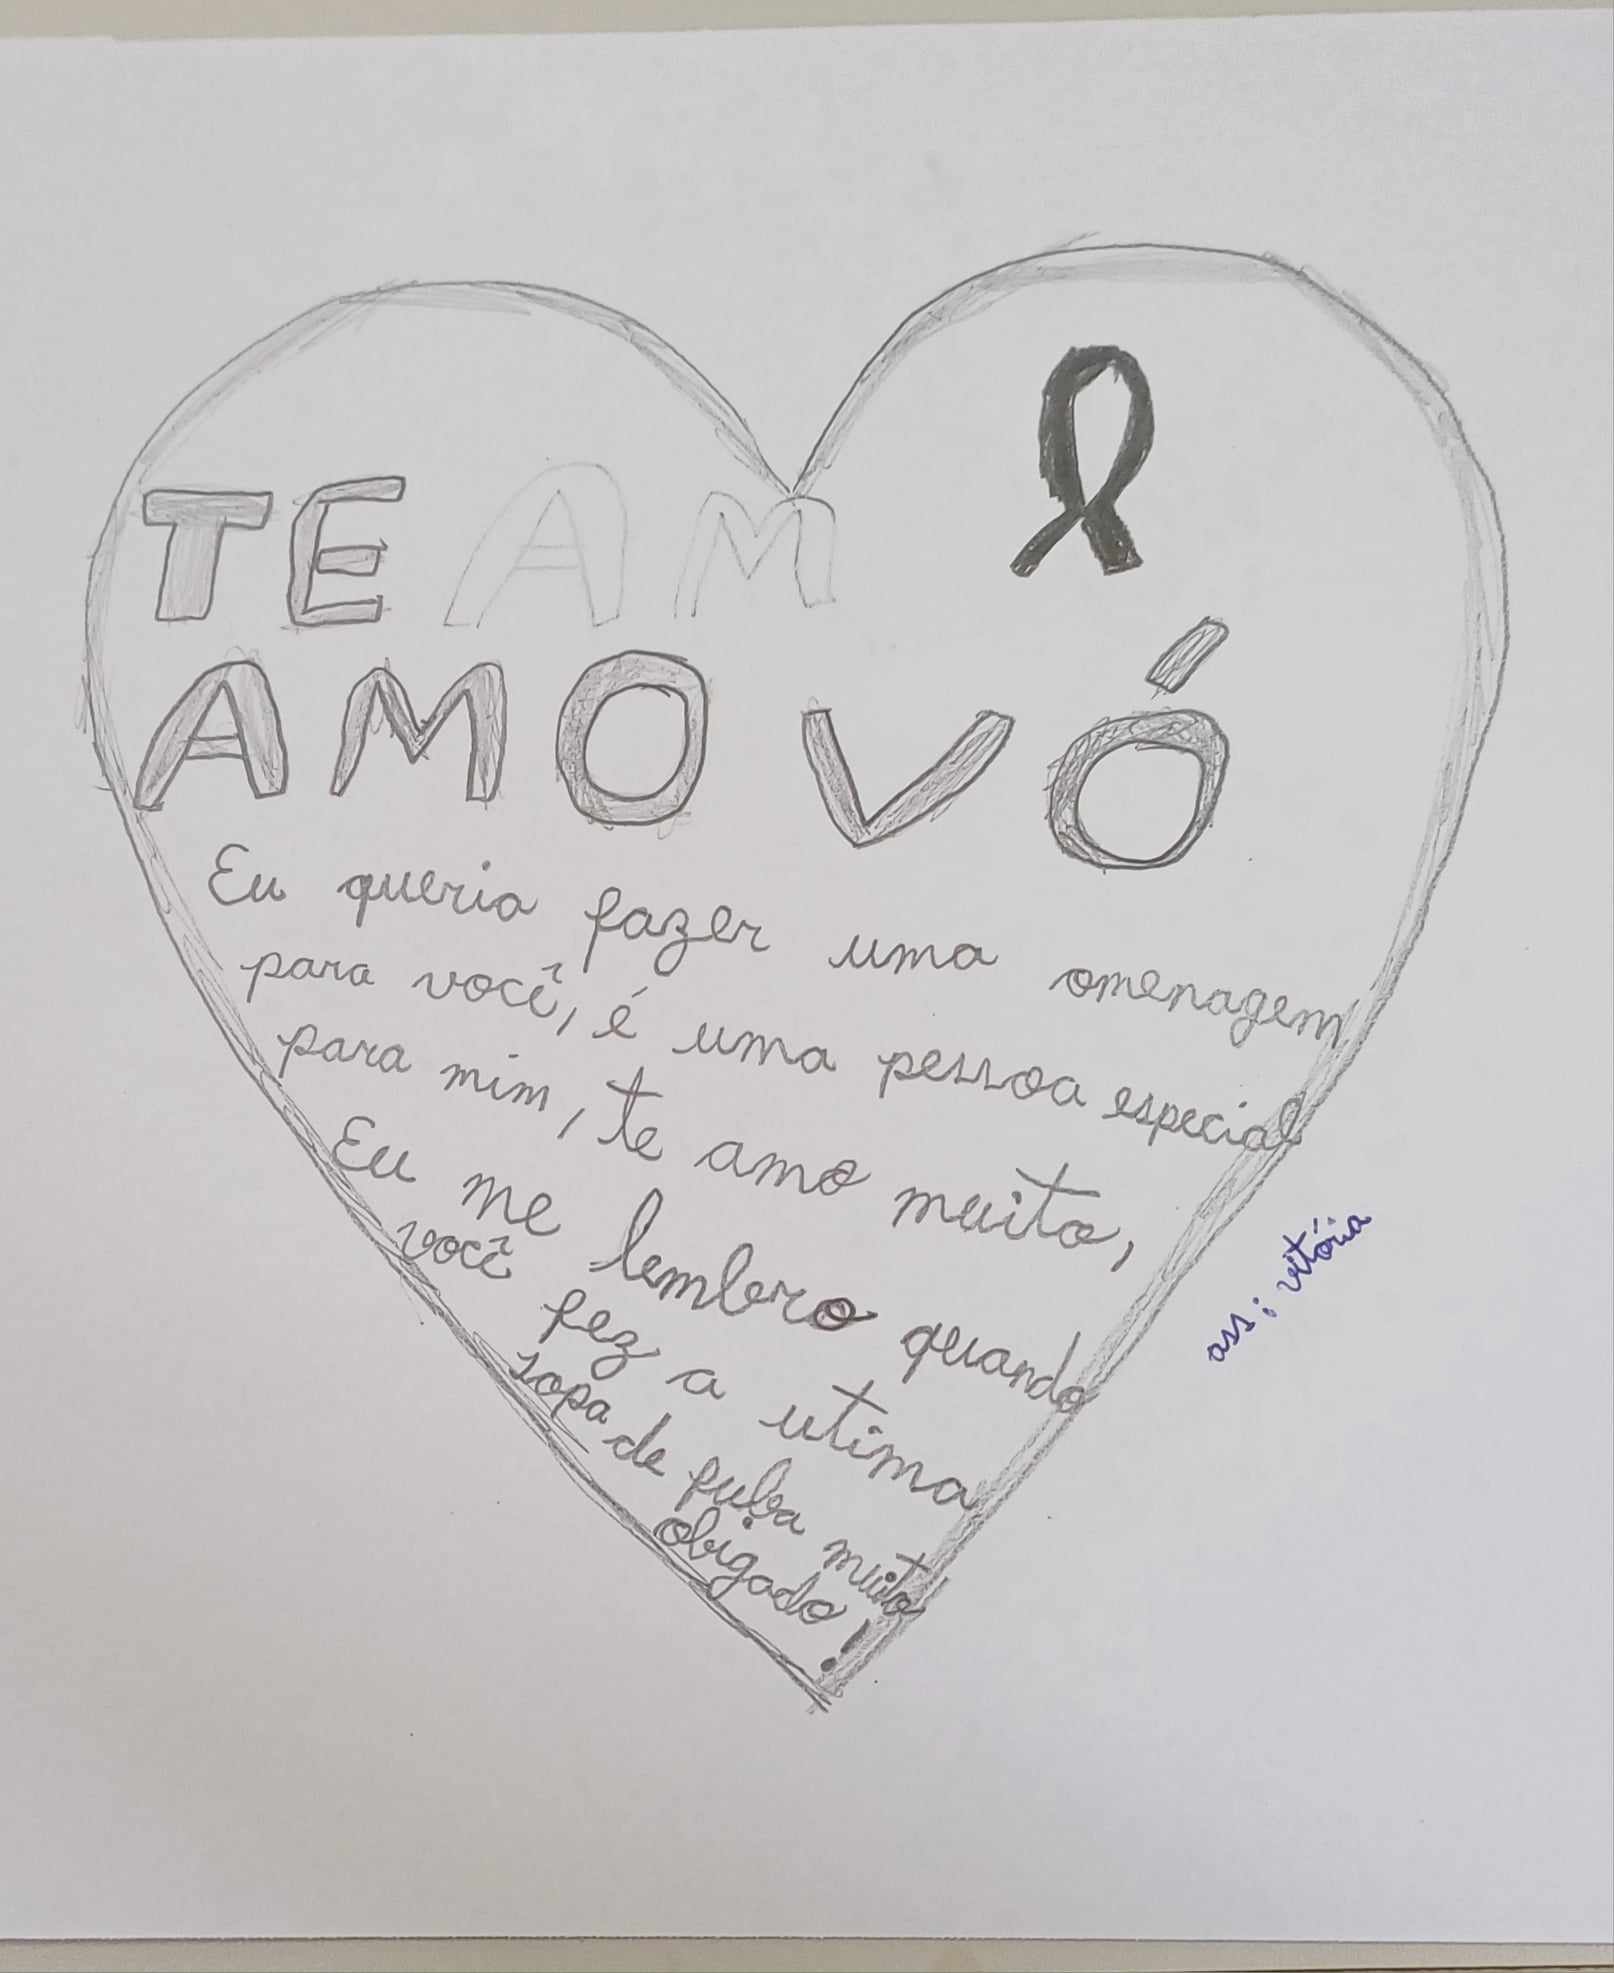 TE AM
AMO VÓ
Eu queria fazer uma omenagem
para você, é uma pessoa especial
para mim, te amo muito,
Eu me lembro quando
você fez a utima
sopa de puba muito
obigado!
ass: vitória